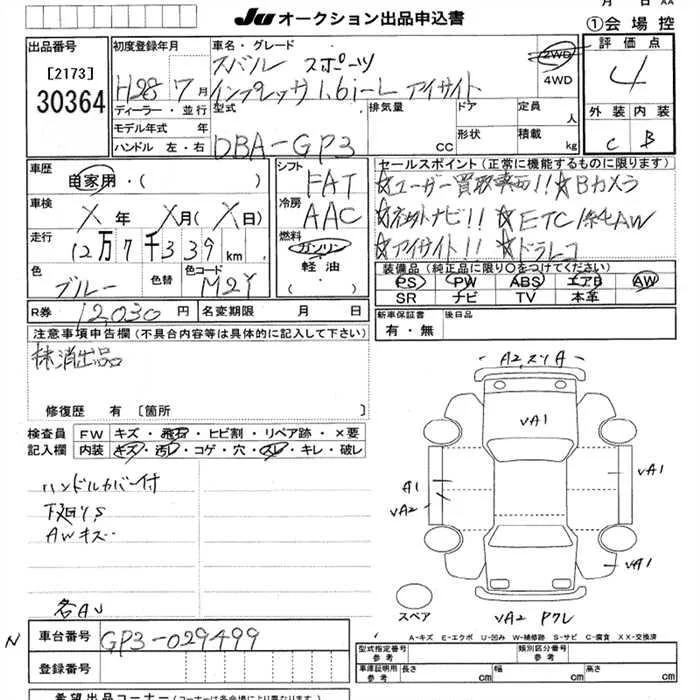 月 日 AA
JU オークション出品申込書
①会場控
出品番号
[2173]
30364
初度登録年月
H28 7月
ディーラー・並行
モデル年式 年
ハンドル 左・右
車名・グレード
スバル スポーツ
インプレッサ 1.6i-L アイサイト
2WD
4WD
型式
DBA-GP3
排気量
CC
ドア
形状
定員
人
積載
kg
評価点
4
外装 内装
C B
車歴
自家用・( )
車検
X 年 X 月( X 日)
走行
12万7千339km
色
ブルー
色替
色コード
M2Y
シフト
FAT
冷房
AAC
燃料
ガソリン
軽油
( )
セールスポイント(正常に機能するものに限ります)
☆ユーザー買取車両!! ☆Bカメラ
☆ネットナビ!! ☆ETC/純AW
☆アイサイト!! ☆ドラレコ
装備品(純正品に限り○をつけてください)
PS PW ABS エアB AW
SR ナビ TV 本革
R券 12,030円
名変期限 月 日
新車保証書
有・無
後日品
注意事項申告欄(不具合内容等は具体的に記入して下さい)
抹消出品
修復歴 有 [箇所 ]
検査員
記入欄
FW キズ・飛石・ヒビ割・リペア跡・×要
内装 キズ・汚レ・コゲ・穴・スレ・キレ・破レ
ハンドルカバー付
下廻りS
AWキズ
各AU
- A2,スリA -
VA1
A1
VA2
VA1
VA1
スペア
VA2 Pクレ
A-キズ E-エクボ U-凹み W-補修跡 S-サビ C-腐食 XX-交換済
N
車台番号 GP3-029499
登録番号
型式指定番号
参考
類別区分番号
参考
車庫証明用
参考
長さ cm
幅 cm
高さ cm
希望出品コーナー(コーナーは各会場により異なります)